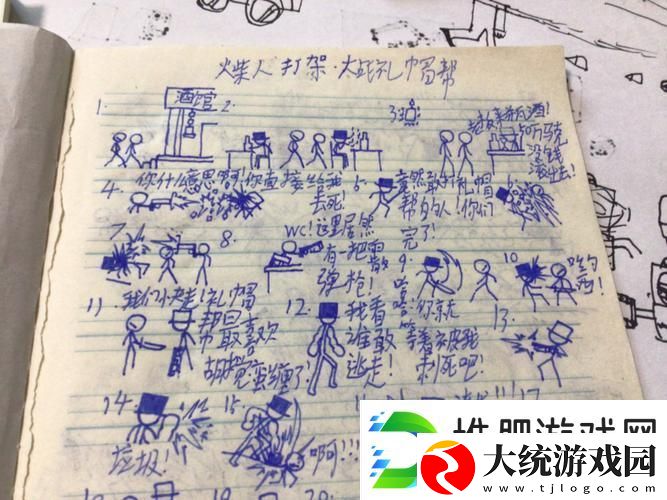 火柴人打架·大战礼帽帮
1.
酒馆
2.
3.
老板来瓶酒!
50万马克
没钱
滚出去!
4.
你什么意思啊!你直接给我
去死!
5.
竟然敢打礼帽
帮的人!你们
完了!
6.
7.
8.
WC!这里居然
有一把雨散
弹枪!
9.
哈
哈!你就
等着被我
刺死吧!
10.
哟西!
11.
我们快走!礼帽
帮最喜欢
胡搅蛮缠了
12.
我看
谁敢
逃走!
13.
14.
垃圾!
15.
啊!!!
17.
18.
19.
20.
推盟游戏网
大统游戏园
www.tjlogo.com